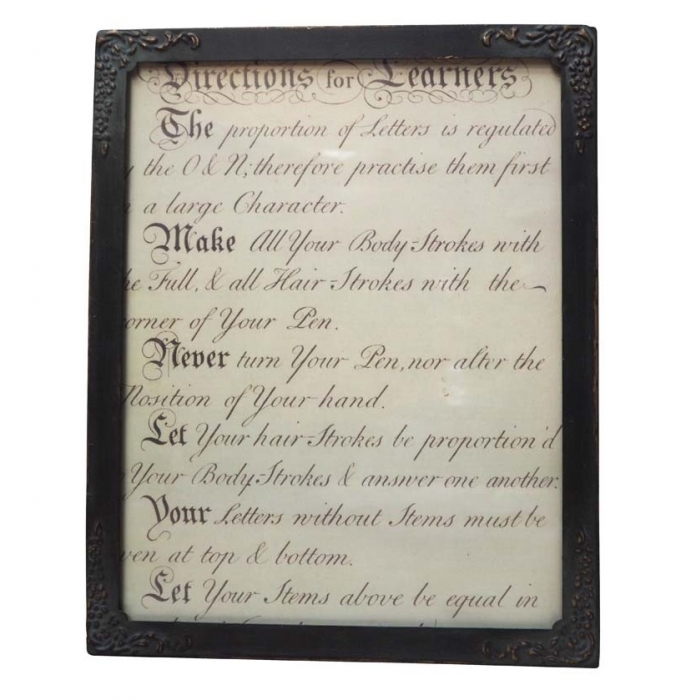 Directions for Learners
The proportion of Letters is regulated
the O & N; therefore practise them first
a large Character.
Make All Your Body-Strokes with
he Full, & all Hair-Strokes with the
orner of Your Pen.
Never turn Your Pen, nor alter the
Position of Your hand.
Let Your hair-Strokes be proportion'd
Your Body-Strokes & answer one another.
Your Letters without Stems must be
ven at top & bottom.
Let Your Stems above be equal in